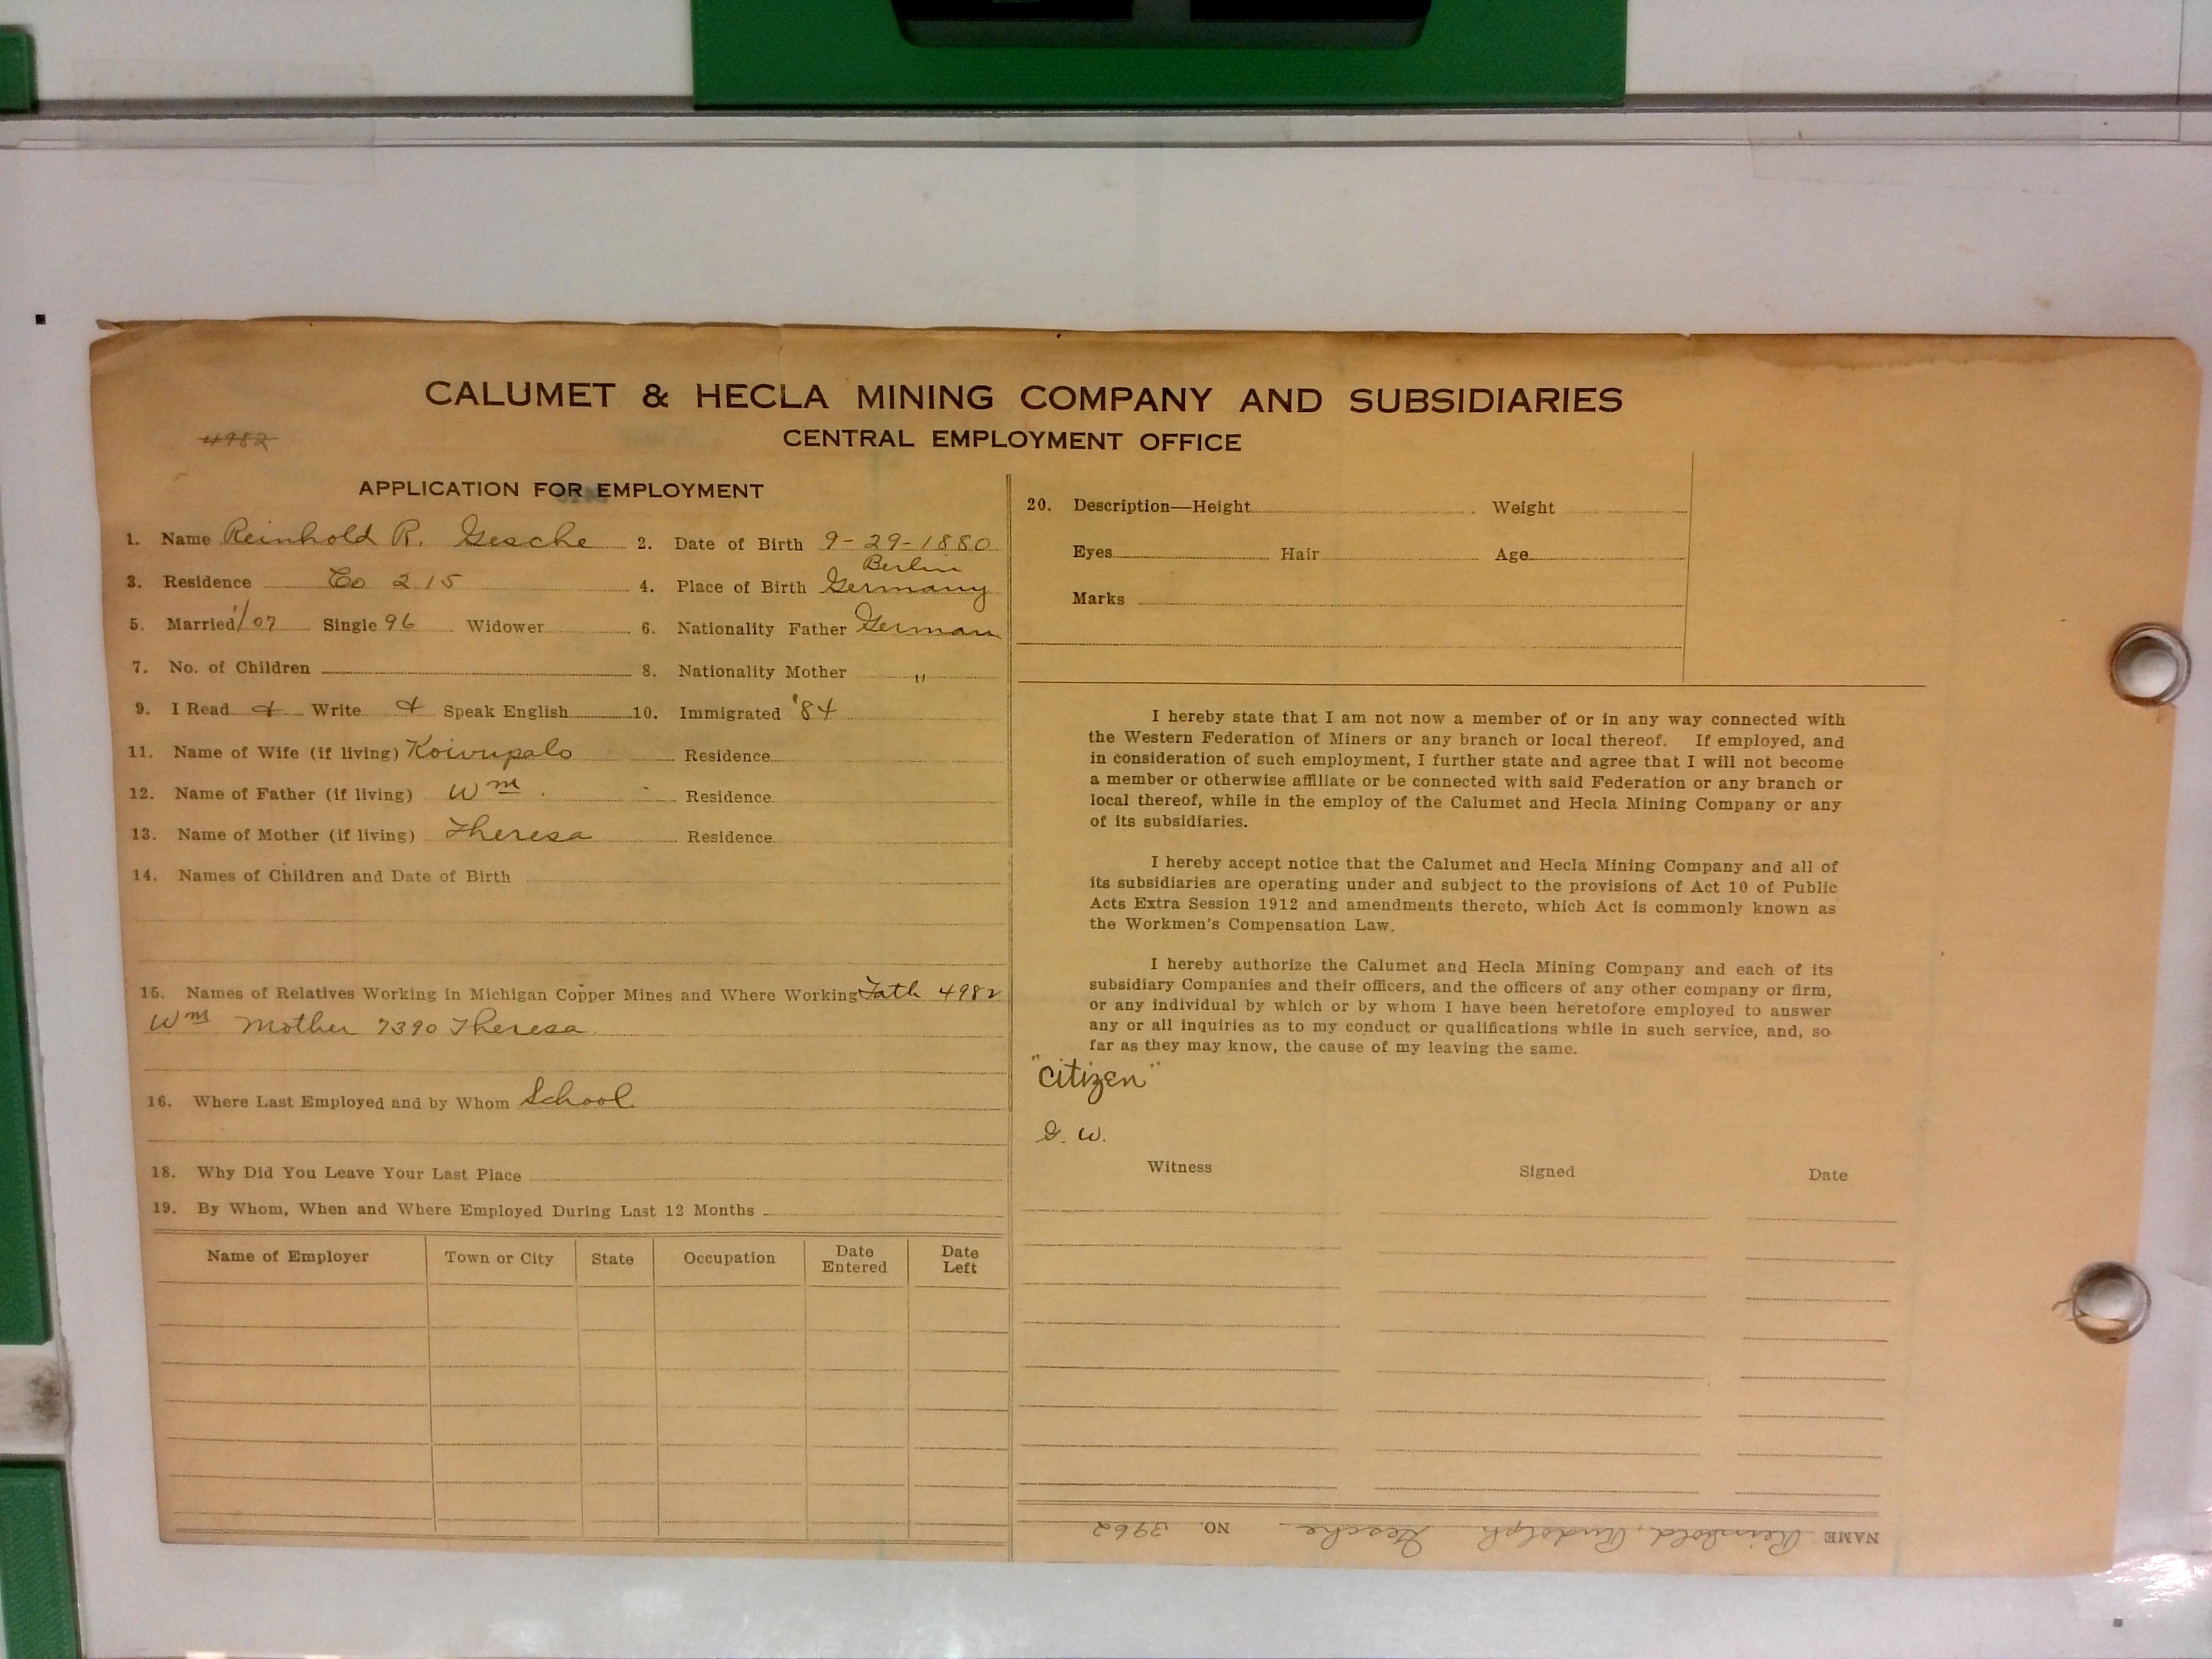 CALUMET & HECLA MINING COMPANY AND SUBSIDIARIES
4982
CENTRAL EMPLOYMENT OFFICE
APPLICATION FOR EMPLOYMENT
1. Name Reinhold R. Gesche 2. Date of Birth 9-29-1880
3. Residence Co 215 4. Place of Birth Berlin Germany
5. Married 1/07 Single 96 Widower 6. Nationality Father German
7. No. of Children 8. Nationality Mother "
9. I Read & Write & Speak English 10. Immigrated '84
11. Name of Wife (if living) Koivupalo Residence
12. Name of Father (if living) Wm. Residence
13. Name of Mother (if living) Theresa Residence
14. Names of Children and Date of Birth
15. Names of Relatives Working in Michigan Copper Mines and Where Working Fath 4982
Wm Mother 7390 Theresa
16. Where Last Employed and by Whom School
18. Why Did You Leave Your Last Place
19. By Whom, When and Where Employed During Last 12 Months
Name of Employer Town or City State Occupation Date Entered Date Left
20. Description—Height Weight
Eyes Hair Age
Marks
I hereby state that I am not now a member of or in any way connected with
the Western Federation of Miners or any branch or local thereof. If employed, and
in consideration of such employment, I further state and agree that I will not become
a member or otherwise affiliate or be connected with said Federation or any branch or
local thereof, while in the employ of the Calumet and Hecla Mining Company or any
of its subsidiaries.
I hereby accept notice that the Calumet and Hecla Mining Company and all of
its subsidiaries are operating under and subject to the provisions of Act 10 of Public
Acts Extra Session 1912 and amendments thereto, which Act is commonly known as
the Workmen's Compensation Law.
I hereby authorize the Calumet and Hecla Mining Company and each of its
subsidiary Companies and their officers, and the officers of any other company or firm,
or any individual by which or by whom I have been heretofore employed to answer
any or all inquiries as to my conduct or qualifications while in such service, and, so
far as they may know, the cause of my leaving the same.
"Citizen"
G. W.
Witness Signed Date
NAME Reinhold, Rudolph Gesche NO. 3962